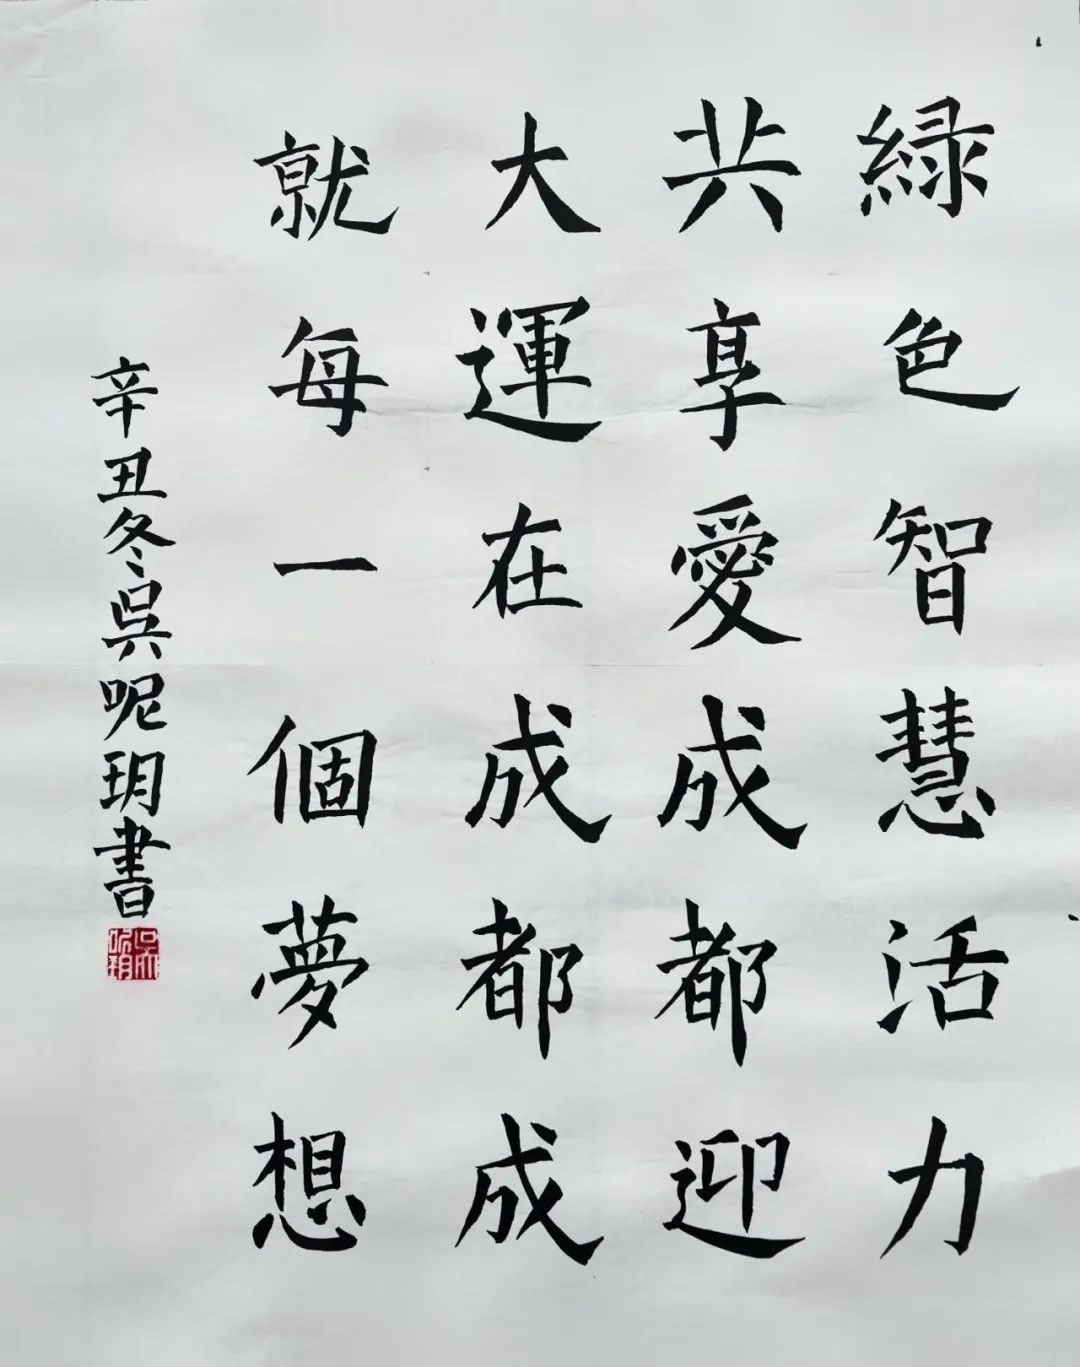 緑色智慧活力
共享愛成都迎
大運在成都成
就每一個夢想
辛丑冬吳呢玥書
吳呢玥